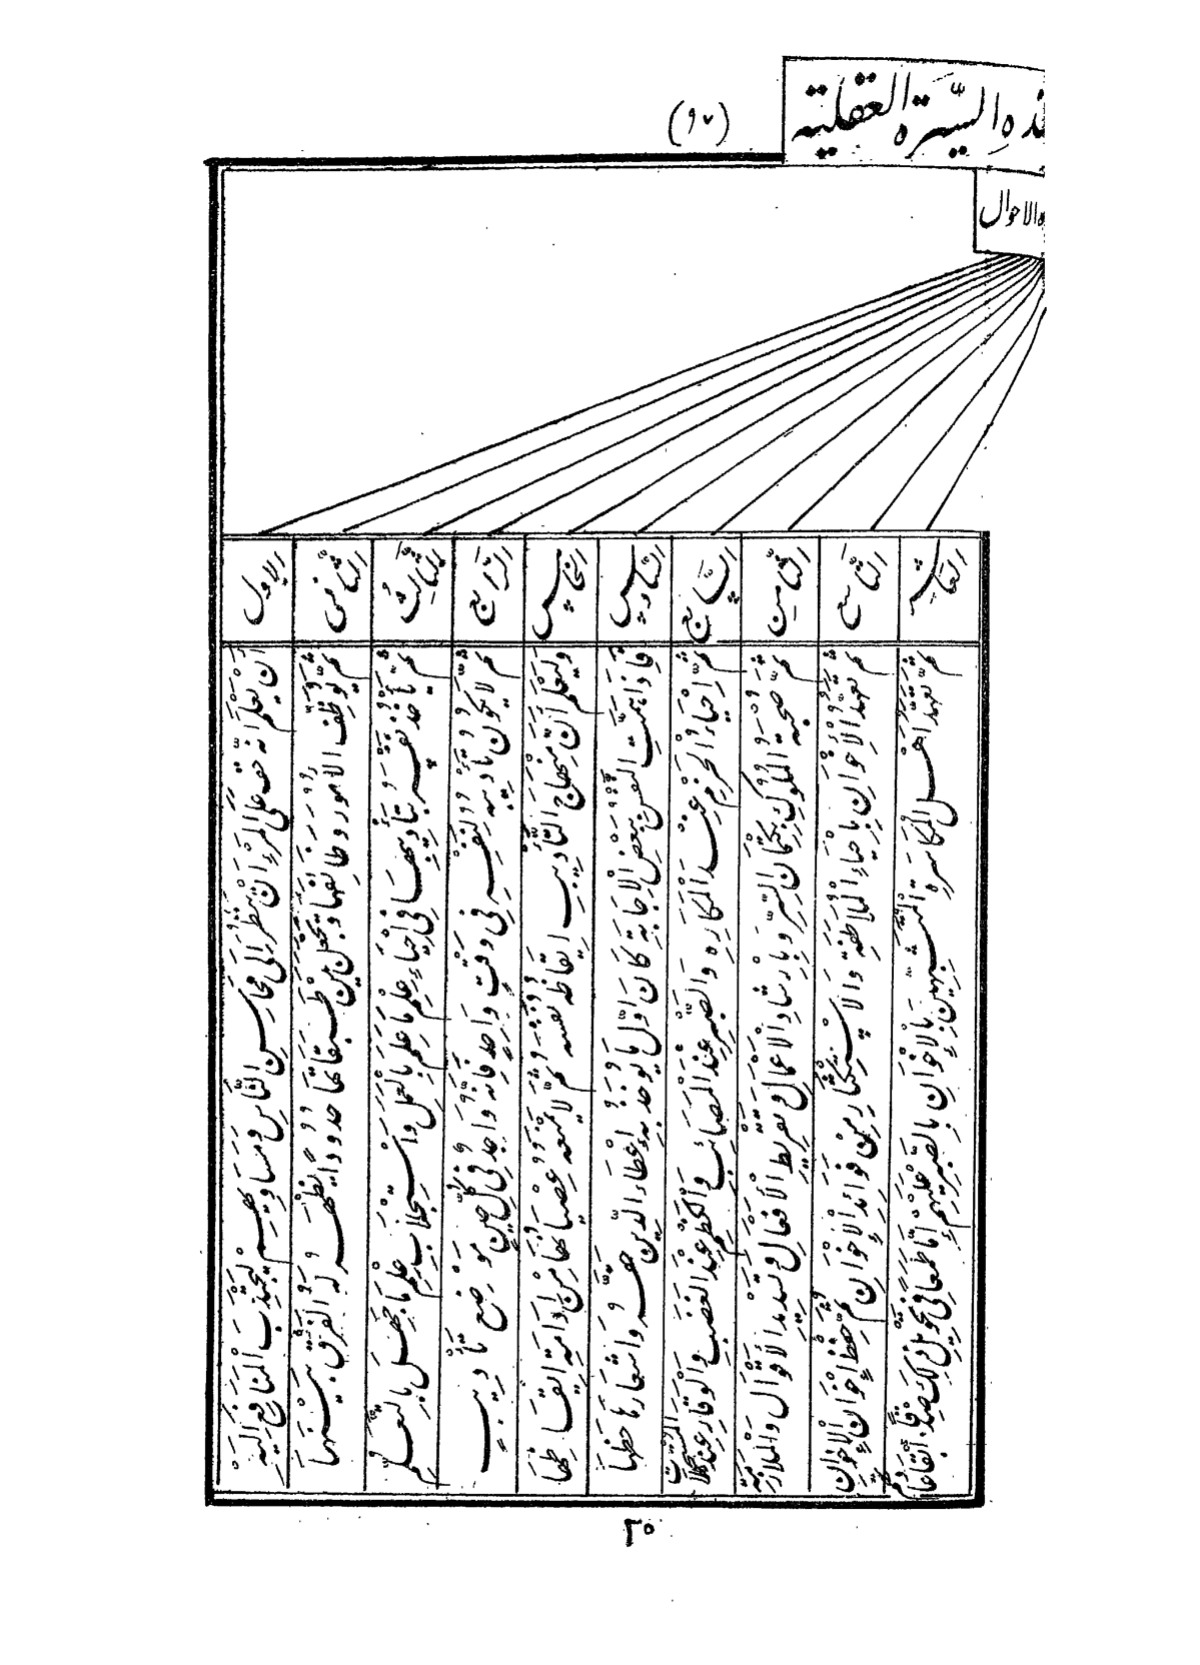 ذه السيرة العقلية
(٩٧)
ه الاحوال
الاول
ان تعلم انه حق على المرء ان ينظر الى محاسن الناس ومساويهم ليجتذب المنافع اليه
الثاني
ثم توظف الامور وظائفها وتجعل بين طبقاتها حدودا يظهر له الفرق بينها
الثالث
ثم ياخذ نفسه بتأديبها في احياء علم ما علم بالعمل واستجلاب علم ما جهل بالتعلم
الرابع
ثم لا يكون تأديبه لنفسه في وقت واحد فانه واجد في كل حين موضع تأديب
الخامس
وليعلم ان منهاج التأديب ايقاظه نفسه ثم لا يمنعه عصيانها من ادامة ايقاظها
السادس
فاذا همت النفس ببعض الاجابة كان اول ما توخذ به اعطاء الدين حقه واشعارها حظها
السابع
ثم احياء الحزم عند المكاره والصبر عند المصائب والكظم عند الغضب والوقار عند
الثامن
ثم صحبة الملوك بكتمان السر وبارشاد الاعمال وتقريظ الافعال وتسديد الاقوال والملازمة
التاسع
ثم تعهد الاخوان باحياء الملاطفة والاستكثار من فوائد الاخوان ثم حفظ اخوان الاخوان
العاشر
ثم تعهد اهل المكاشرة المتشبهين بالاخوان بالصبر عليهم اما طمعا في تحويل ذلك صدقا
٢٥